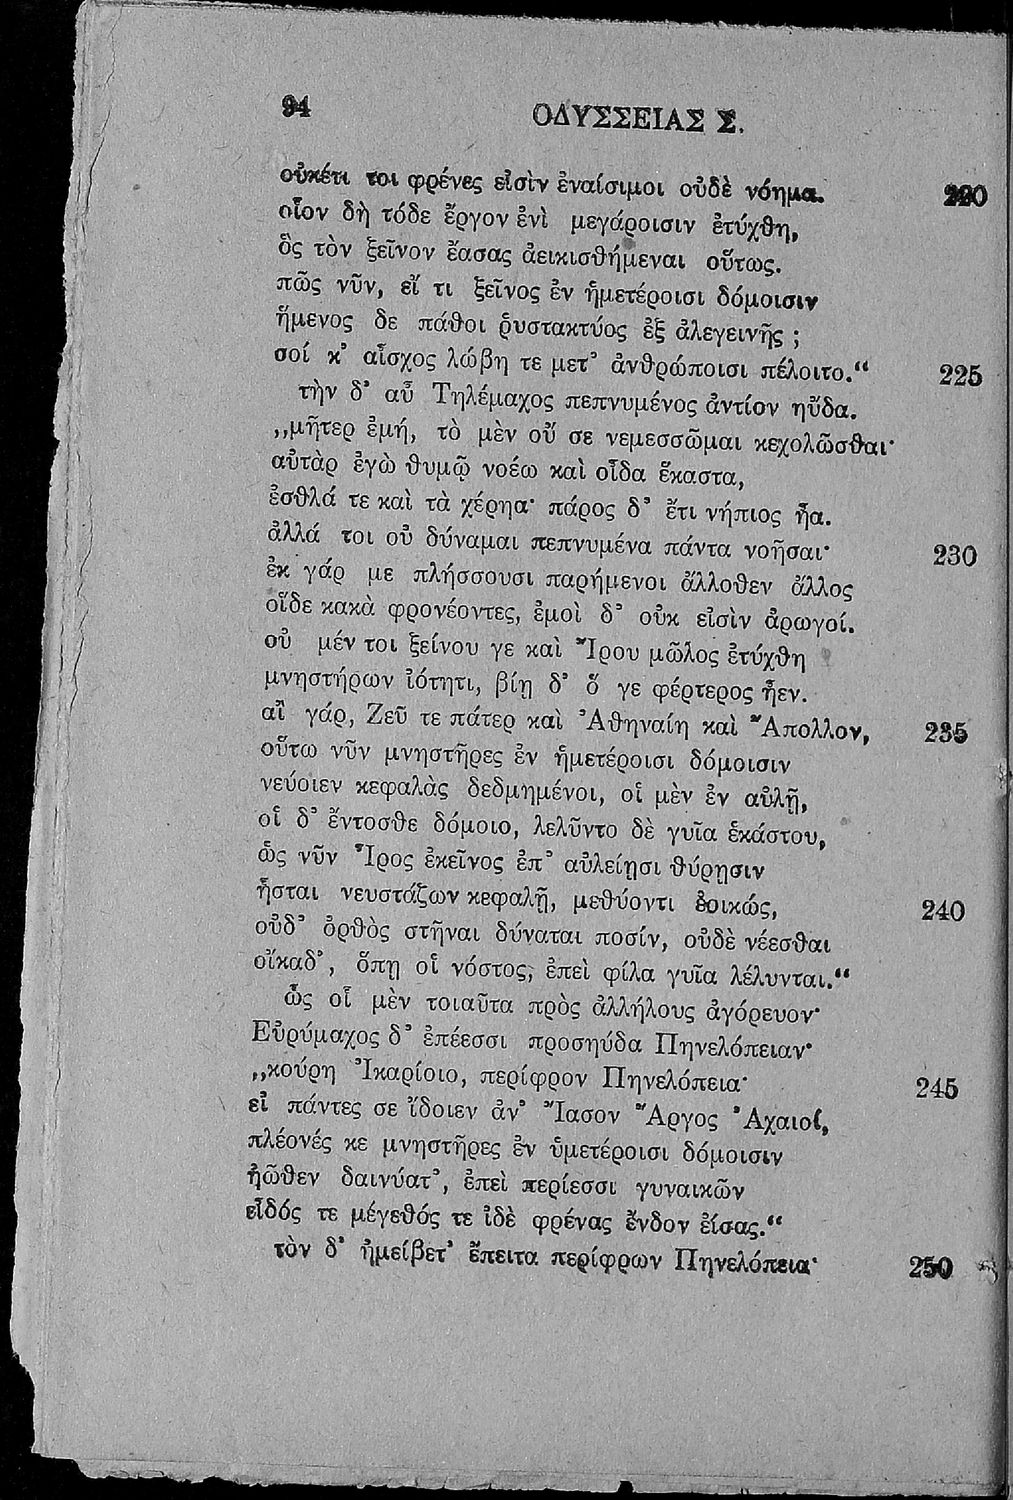 94 ΟΔΥΣΣΕΙΑΣ Σ.
οὐκέτι τοι φρένες εἰσὶν ἐναίσιμοι οὐδὲ νόημα. 220
οἷον δὴ τόδε ἔργον ἐνὶ μεγάροισιν ἐτύχθη,
ὃς τὸν ξεῖνον ἔασας ἀεικισθήμεναι οὕτως.
πῶς νῦν, εἴ τι ξεῖνος ἐν ἡμετέροισι δόμοισιν
ἥμενος δε πάθοι ῥυστακτύος ἐξ ἀλεγεινῆς ;
σοί κ' αἶσχος λώβη τε μετ' ἀνθρώποισι πέλοιτο.“ 225
τὴν δ' αὖ Τηλέμαχος πεπνυμένος ἀντίον ηὔδα.
„μῆτερ ἐμή, τὸ μὲν οὔ σε νεμεσσῶμαι κεχολῶσθαι·
αὐτὰρ ἐγὼ θυμῷ νοέω καὶ οἶδα ἕκαστα,
ἐσθλά τε καὶ τὰ χέρηα· πάρος δ' ἔτι νήπιος ἦα.
ἀλλά τοι οὐ δύναμαι πεπνυμένα πάντα νοῆσαι· 230
ἐκ γάρ με πλήσσουσι παρήμενοι ἄλλοθεν ἄλλος
οἵδε κακὰ φρονέοντες, ἐμοὶ δ' οὐκ εἰσὶν ἀρωγοί.
οὐ μέν τοι ξείνου γε καὶ Ἴρου μῶλος ἐτύχθη
μνηστήρων ἰότητι, βίῃ δ' ὅ γε φέρτερος ἦεν.
αἲ γάρ, Ζεῦ τε πάτερ καὶ Ἀθηναίη καὶ Ἄπολλον, 235
οὕτω νῦν μνηστῆρες ἐν ἡμετέροισι δόμοισιν
νεύοιεν κεφαλὰς δεδμημένοι, οἱ μὲν ἐν αὐλῇ,
οἱ δ' ἔντοσθε δόμοιο, λελῦντο δὲ γυῖα ἑκάστου,
ὡς νῦν Ἶρος ἐκεῖνος ἐπ' αὐλείῃσι θύρῃσιν
ἧσται νευστάζων κεφαλῇ, μεθύοντι ἐοικώς, 240
οὐδ' ὀρθὸς στῆναι δύναται ποσίν, οὐδὲ νέεσθαι
οἴκαδ', ὅπῃ οἱ νόστος, ἐπεὶ φίλα γυῖα λέλυνται.“
ὣς οἳ μὲν τοιαῦτα πρὸς ἀλλήλους ἀγόρευον·
Εὐρύμαχος δ' ἐπέεσσι προσηύδα Πηνελόπειαν·
„κούρη Ἰκαρίοιο, περίφρον Πηνελόπεια· 245
εἰ πάντες σε ἴδοιεν ἀν' Ἴασον Ἄργος Ἀχαιοί,
πλέονές κε μνηστῆρες ἐν ὑμετέροισι δόμοισιν
ἠῶθεν δαινύατ', ἐπεὶ περίεσσι γυναικῶν
εἶδός τε μέγεθός τε ἰδὲ φρένας ἔνδον ἐίσας.“
τὸν δ' ἠμείβετ' ἔπειτα περίφρων Πηνελόπεια· 250